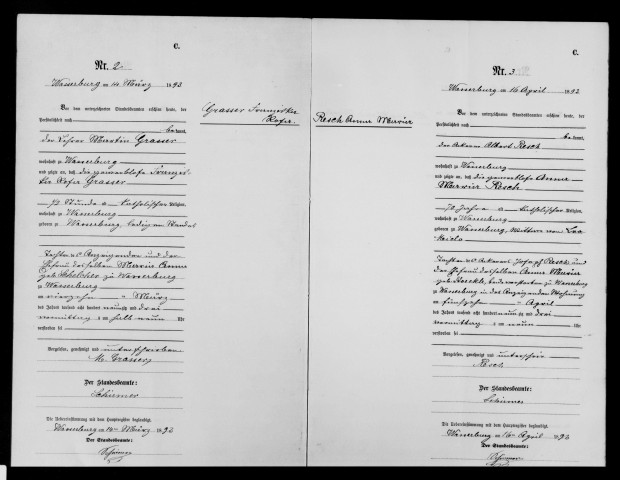 C.
Nr. 2.
Wasserburg am 14 März 1893
Vor dem unterzeichneten Standesbeamten erschien heute, der
Persönlichkeit nach
be kannt,
der Lehrer Martin Grasser
wohnhaft zu Wasserburg
und zeigte an, daß die gewerblose Franzis-
ka Rosa Grasser
72 Stunde a katholischer Religion,
wohnhaft zu Wasserburg
geboren zu Wasserburg, ledigen Standes
Tochter des Anzeigenden und der
Ehefrau desselben Maria Anna
geb. zu Wasserburg
zu Wasserburg
am vierzehn ten März
des Jahres tausend acht hundert neunzig und drei
vormittags um halb neun Uhr
verstorben sei
Vorgelesen, genehmigt und unterschrieben
M. Grasser
Der Standesbeamte:
Schirmer
Die Uebereinstimmung mit dem Hauptregister beglaubigt
Wasserburg am 14 März 1893
Der Standesbeamte:
Schirmer
Grasser Franziska
Rosa.
Resch Anna Maria
C.
Nr. 3.
Wasserburg am 16 April 1893
Vor dem unterzeichneten Standesbeamten erschien heute, der
Persönlichkeit nach
be kannt,
der Albert Resch
wohnhaft zu Wasserburg
und zeigte an, daß die gewerblose Anna
Maria Resch
70 Jahre a katholischer Religion,
wohnhaft zu Wasserburg
geboren zu Wasserburg, Wittwe von
Tochter des Josepf Resch und
der Ehefrau desselben Anna Maria
geb. beide verstorben zu Wasserburg
zu Wasserburg in des Anzeigenden Wohnung
am fünfzehn ten April
des Jahres tausend acht hundert neunzig und drei
vormittags um neun Uhr
verstorben sei
Vorgelesen, genehmigt und unterschrieben
Resch
Der Standesbeamte:
Schirmer
Die Uebereinstimmung mit dem Hauptregister beglaubigt
Wasserburg am 16 April 1893
Der Standesbeamte:
Schirmer